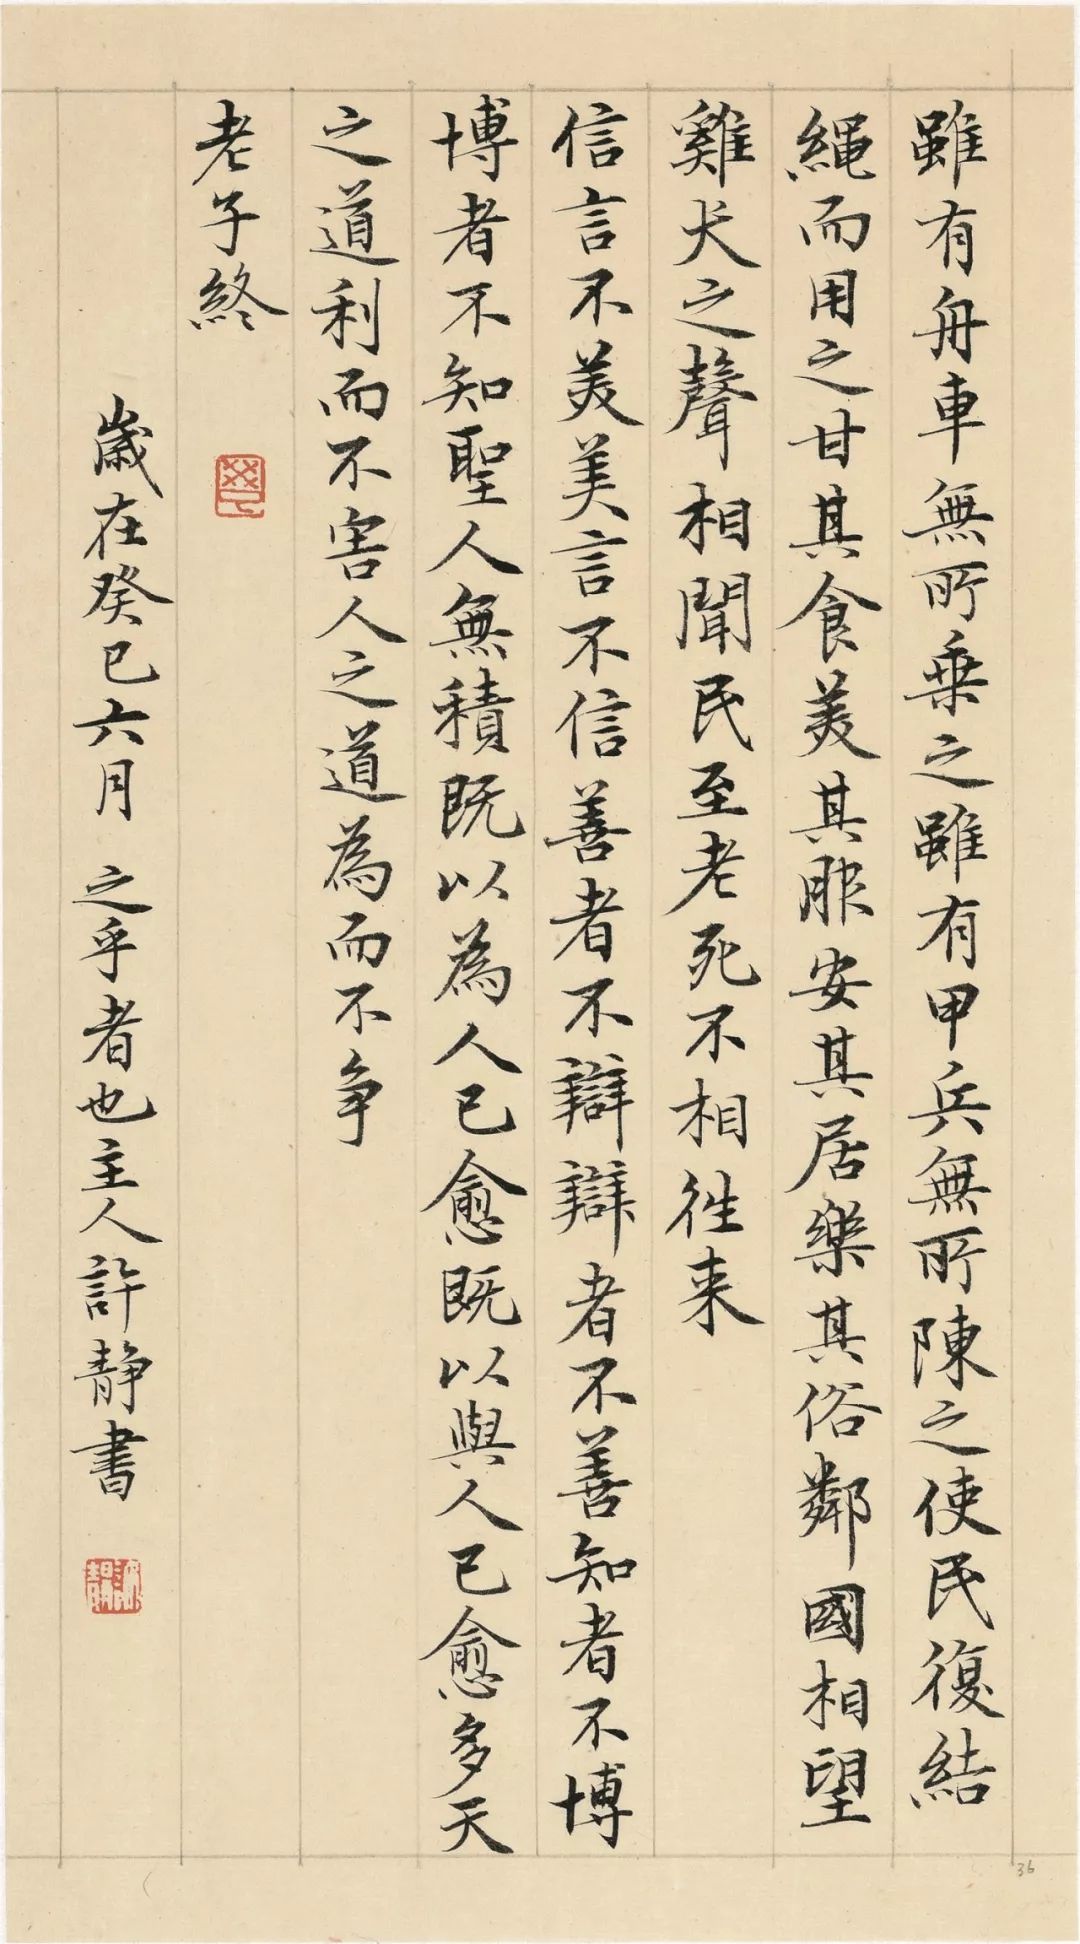 雖有舟車無所乗之雖有甲兵無所陳之使民復結
繩而用之甘其食美其服安其居樂其俗鄰國相望
雞犬之聲相聞民至老死不相往来
信言不美美言不信善者不辯辯者不善知者不博
博者不知聖人無積既以為人已愈既以與人已愈多天
之道利而不害人之道為而不争
老子終
歲在癸已六月 之乎者也主人許靜書
36